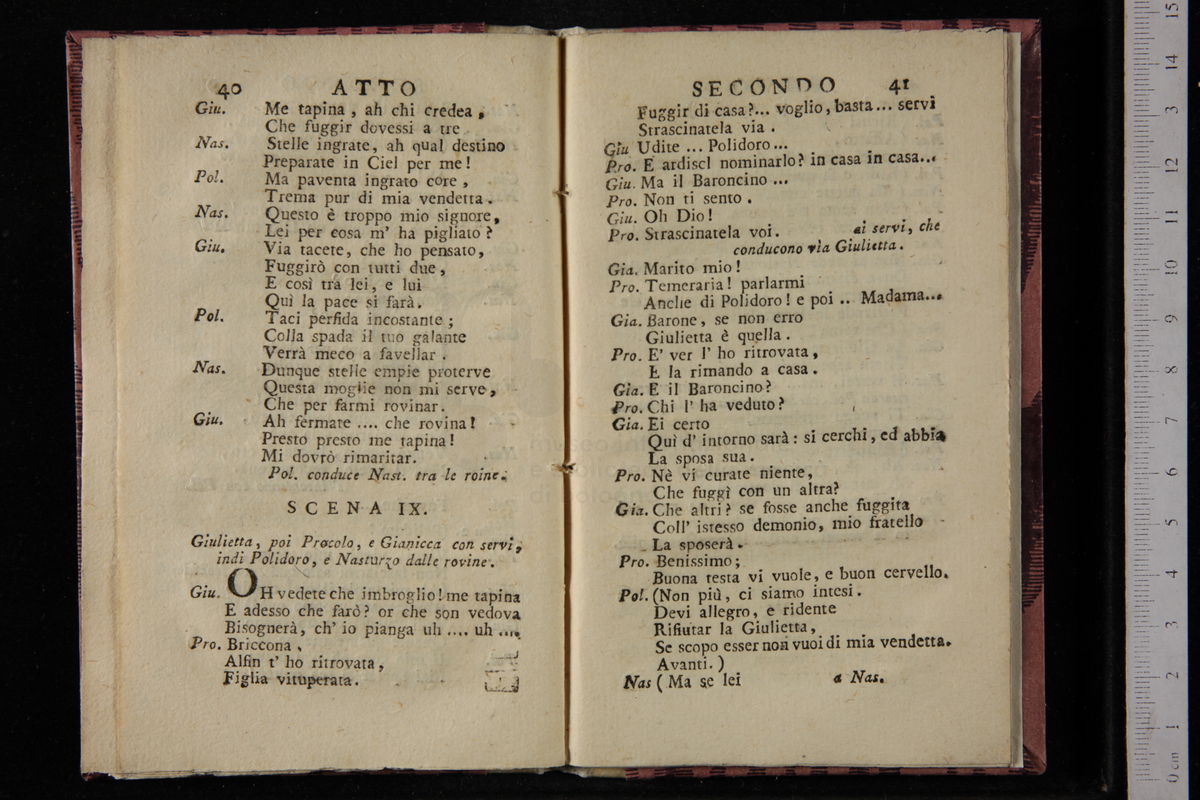 40 ATTO
Giu. Me tapina, ah chi credea,
Che fuggir dovessi a tre
Nas. Stelle ingrate, ah qual destino
Preparate in Ciel per me!
Pol. Ma paventa ingrato core,
Trema pur di mia vendetta.
Nas. Questo è troppo mio signore,
Lei per cosa m' ha pigliato?
Giu. Via tacete, che ho pensato,
Fuggirò con tutti due,
E così tra lei, e lui
Quì la pace si farà.
Pol. Taci perfida incostante;
Colla spada il tuo galante
Verrà meco a favellar.
Nas. Dunque stelle empie proterve
Questa moglie non mi serve,
Che per farmi rovinar.
Giu. Ah fermate .... che rovina!
Presto presto me tapina!
Mi dovrò rimaritar.
Pol. conduce Nast. tra le roine.
SCENA IX.
Giulietta, poi Procolo, e Gianicca con servi,
indi Polidoro, e Nasturzo dalle rovine.
Giu. OH vedete che imbroglio! me tapina
E adesso che farò? or che son vedova
Bisognerà, ch' io pianga uh .... uh ....
Pro. Briccona,
Alfin t' ho ritrovata,
Figlia vituperata.
SECONDO 41
Fuggir di casa?... voglio, basta... servi
Strascinatela via.
Giu Udite ... Polidoro...
Pro. E ardisci nominarlo? in casa in casa...
Giu. Ma il Baroncino ...
Pro. Non ti sento.
Giu. Oh Dio!
Pro. Strascinatela voi. ai servi, che
conducono via Giulietta.
Gia. Marito mio!
Pro. Temeraria! parlarmi
Anche di Polidoro! e poi .. Madama...
Gia. Barone, se non erro
Giulietta è quella.
Pro. E' ver l' ho ritrovata,
E la rimando a casa.
Gia. E il Baroncino?
Pro. Chi l' ha veduto?
Gia. Ei certo
Quì d' intorno sarà: si cerchi, ed abbia
La sposa sua.
Pro. Nè vi curate niente,
Che fuggì con un altra?
Gia. Che altri? se fosse anche fuggita
Coll' istesso demonio, mio fratello
La sposerà.
Pro. Benissimo;
Buona testa vi vuole, e buon cervello.
Pol. (Non più, ci siamo intesi.
Devi allegro, e ridente
Rifiutar la Giulietta,
Se scopo esser non vuoi di mia vendetta.
Avanti.)
Nas (Ma se lei a Nas.
0 cm 1 2 3 4 5 6 7 8 9 10 11 12 13 14 15